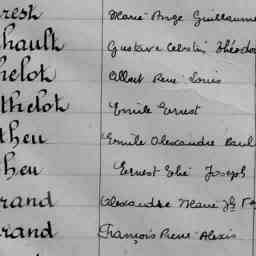 rest Marie Ange Guillaume
hault Gustave Célestin Théodo
helot Albert René Louis
thelot Emile Ernest
theu Emile Alexandre Paul
heu Ernest Elie Joseph
rand Alexandre Marie Jh
rand François Pierre Alexis